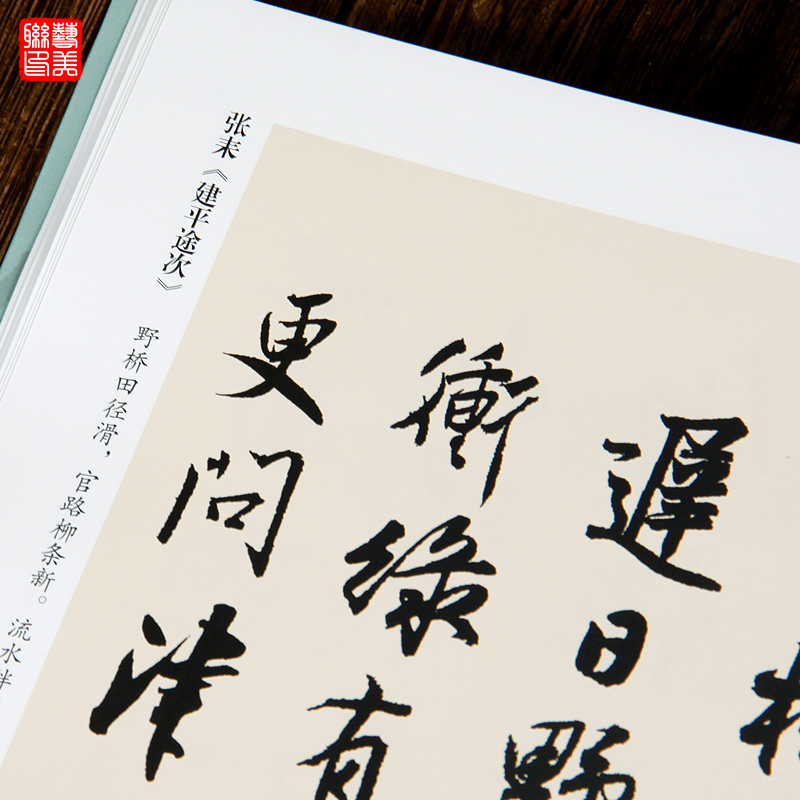 藝美
聯
遲日野
衝緑有
更問津
张耒《建平途次》 野桥田径滑，官路柳条新。 流水